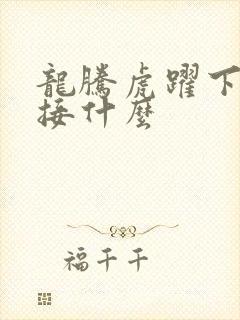 龍騰虎躍下
接什麼
福千千